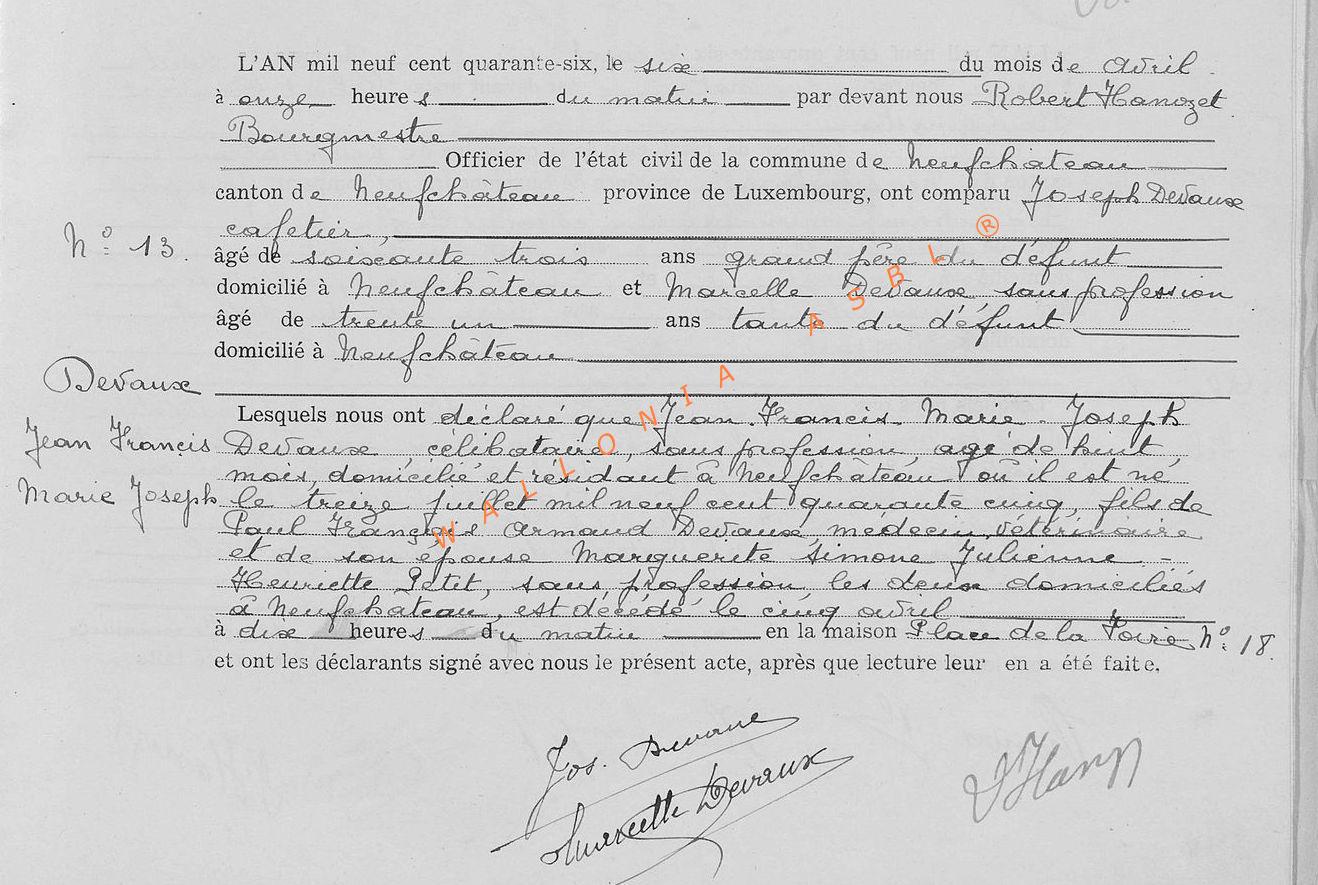 L'AN mil neuf cent quarante-six, le six du mois de avril
à onze heures du matin par devant nous Robert Hanozet
Bourgmestre
Officier de l'état civil de la commune de Neufchateau
canton de Neufchâteau province de Luxembourg, ont comparu Joseph Devaux
cafetier,
N° 13.
âgé de soixante trois ans grand père du défunt
domicilié à Neufchâteau et Marcelle Devaux, sans profession
âgé de trente un ans tante du défunt
domicilié à Neufchâteau
Devaux
Jean Francis
Marie Joseph
Lesquels nous ont déclaré que Jean Francis Marie Joseph
Devaux, célibataire, sans profession, agé de huit
mois, domicilié et résidant à Neufchâteau où il est né
le treize juillet mil neuf cent quarante cinq, fils de
Paul François Armand Devaux, médecin vétérinaire
et de son épouse Marguerite Simone Julienne -
Henriette Petit, sans profession, les deux domiciliés
à Neufchateau, est décédé le cinq avril
à dix heures du matin en la maison Place de la Foire N° 18.
et ont les déclarants signé avec nous le présent acte, après que lecture leur en a été faite.
Jos. Devaux
Marcelle Devaux
WALLONIA ASBL ®